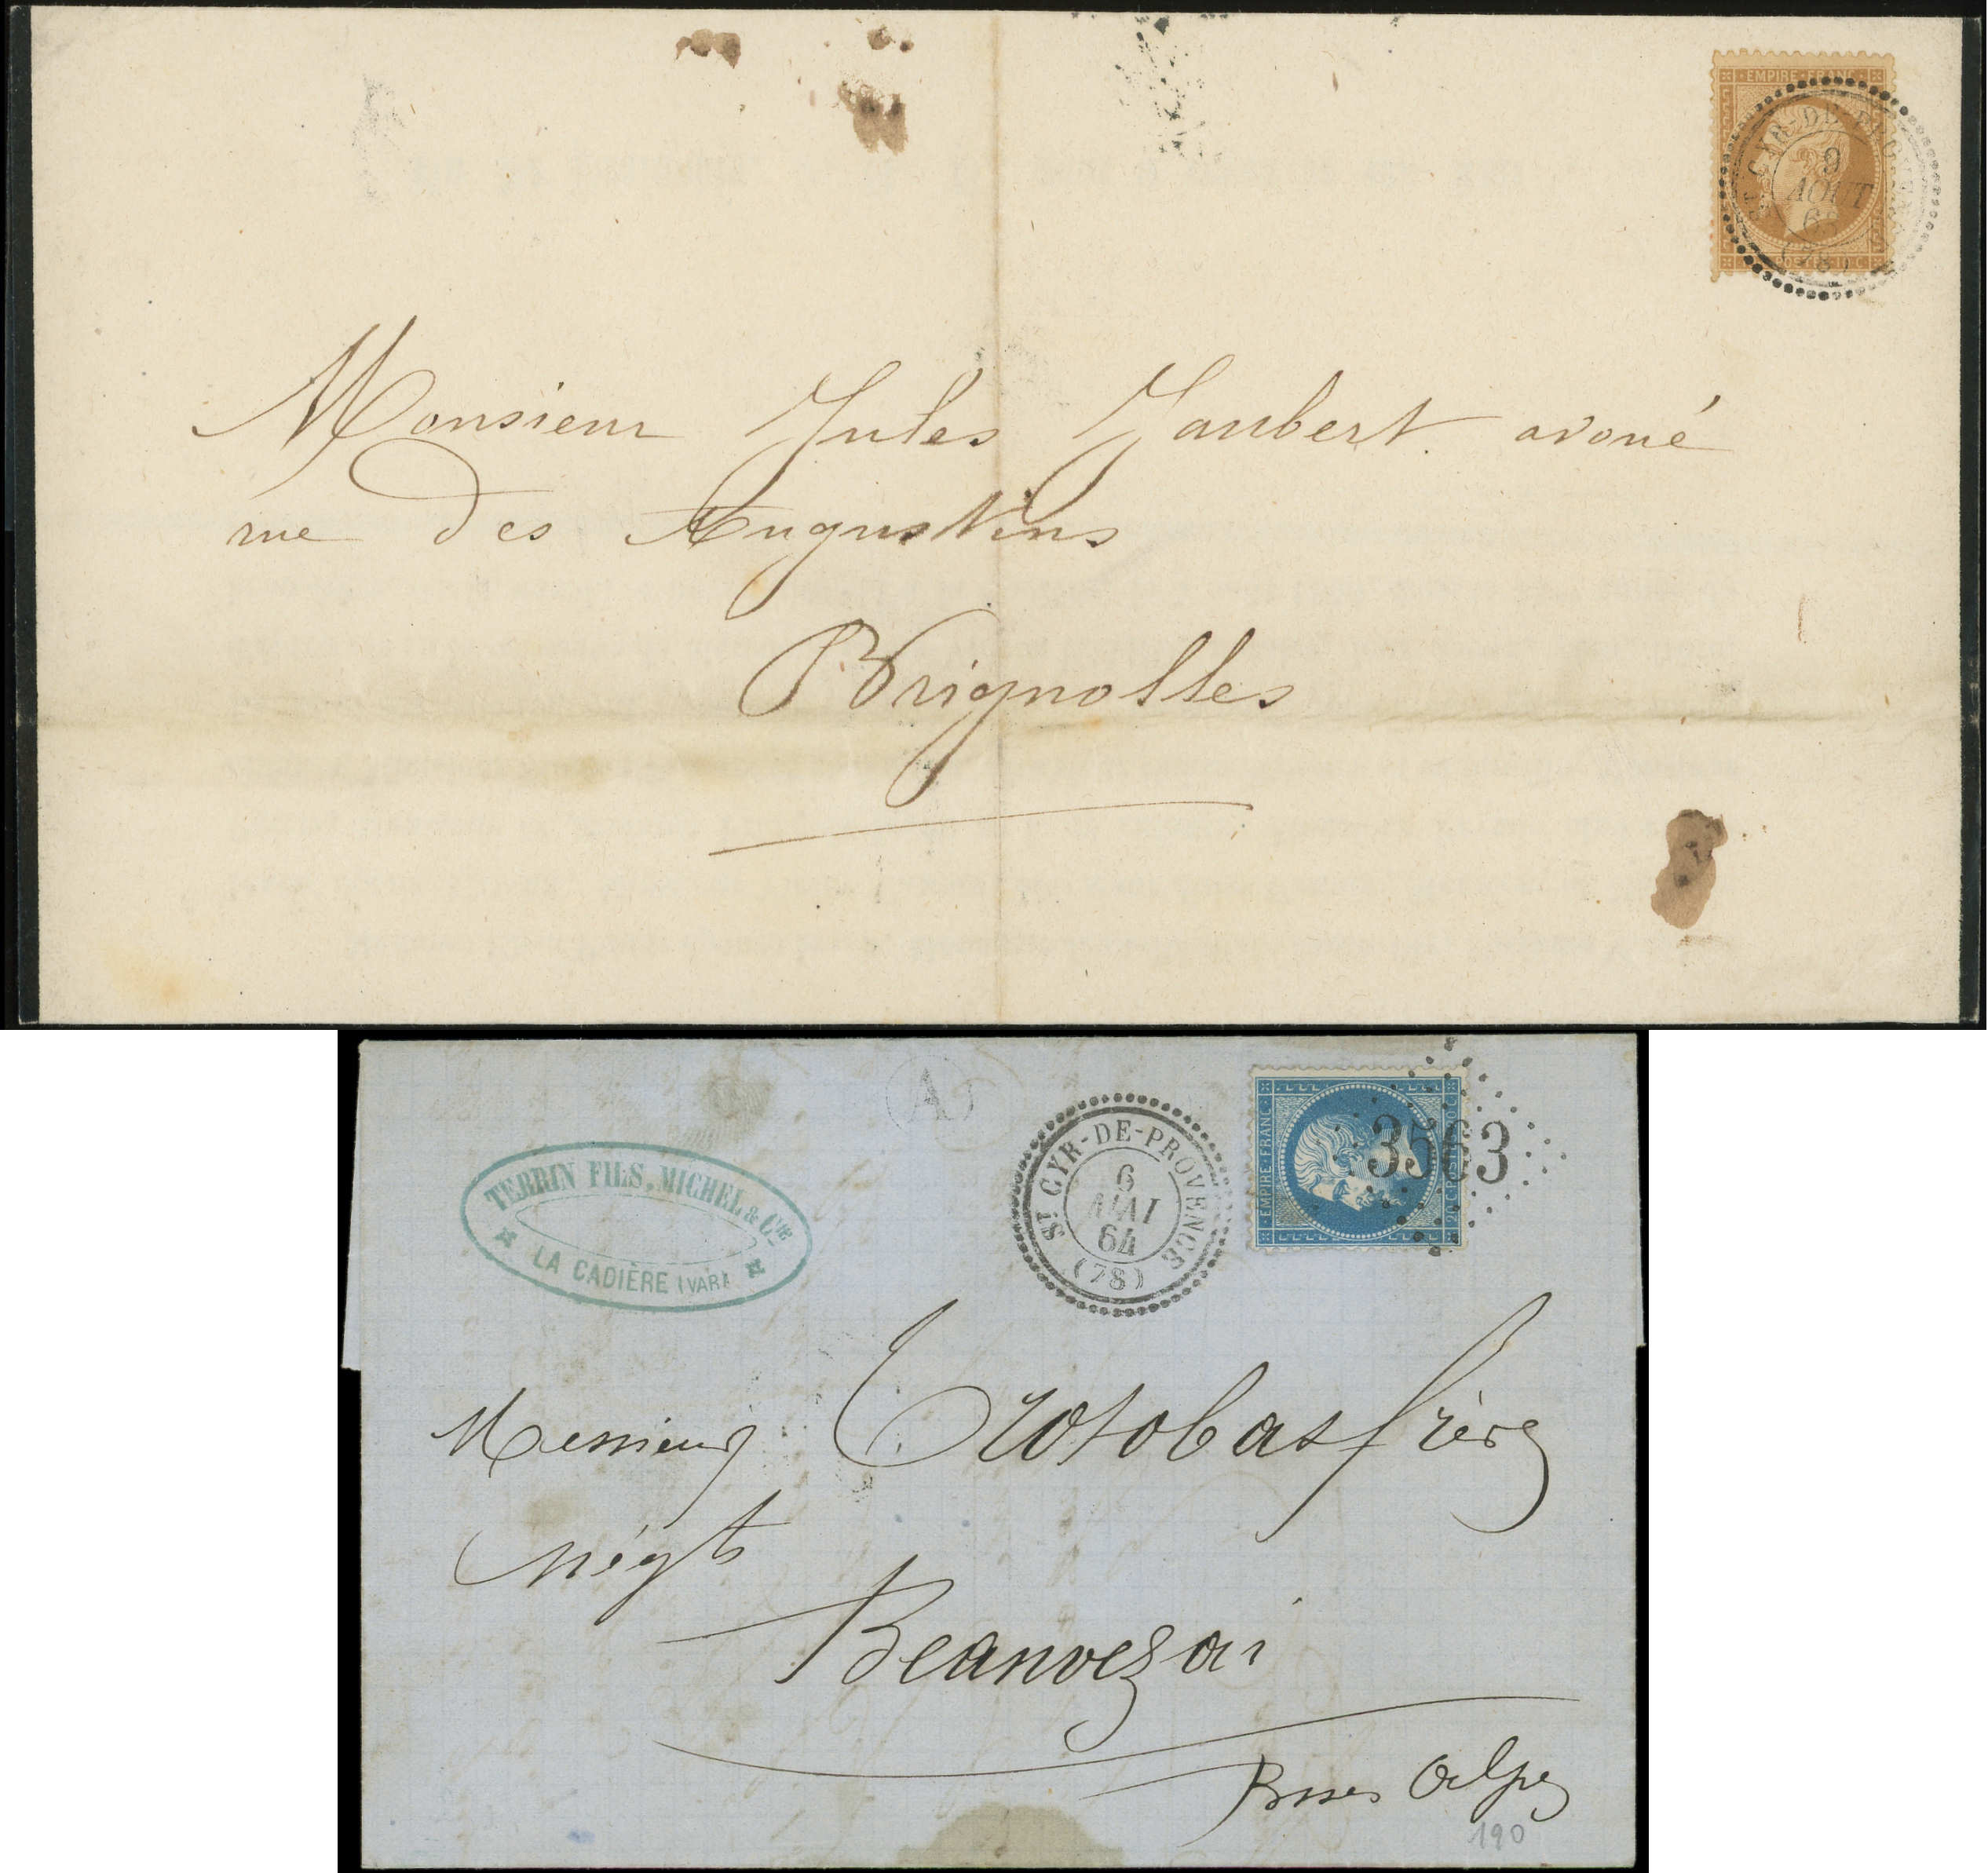 EMPIRE·FRANC
ST CYR-DE-PROVENCE
9
AOUT
POSTES 10 C
Monsieur Jules Jaubert avoué
rue des Augustins
Brignolles
A
TERRIN FILS, MICHEL & Cie
LA CADIÈRE (VAR)
ST CYR-DE-PROVENCE
6
MAI
64
(78)
EMPIRE·FRANC
3563
20 C POSTES 20 C
Messieurs Trotobas frères
négts
Beauvezai
Bsses Alpes
190